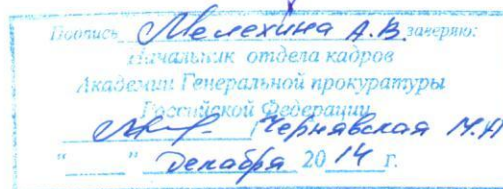 Подпись Мелехина А.В. заверяю:
Начальник отдела кадров
Академии Генеральной прокуратуры
Российской Федерации
Чернявская М.А
“ ” декабря 2014 г.